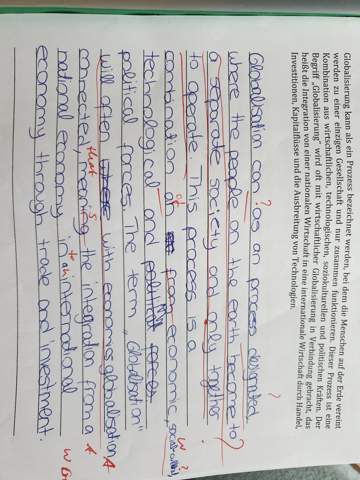 Globalisierung kann als ein Prozess bezeichnet werden, bei dem die Menschen auf der Erde vereint
werden zu einer einzigen Gesellschaft und nur zusammen funktionieren. Dieser Prozess ist eine
Kombination aus wirtschaftlichen, technologischen, soziokulturellen und politischen Kräften. Der
Begriff „Globalisierung“ wird oft mit wirtschaftlicher Globalisierung in Verbindung gebracht, das
heißt die Integration von einer nationalen Wirtschaft in eine internationale Wirtschaft durch Handel,
Investitionen, Kapitalflüsse und die Ausbreitung von Technologien.
?
Globalisation can ? as an process designated
where the people on the earth become to ?
a separate society and only together
to operate. This process is a
combination of from economic,
technological and political
political forces. The term „Globalisation"
will often with economic globalisation A
connected that the integration from a A
national economy in an international W
economy through trade and investment.